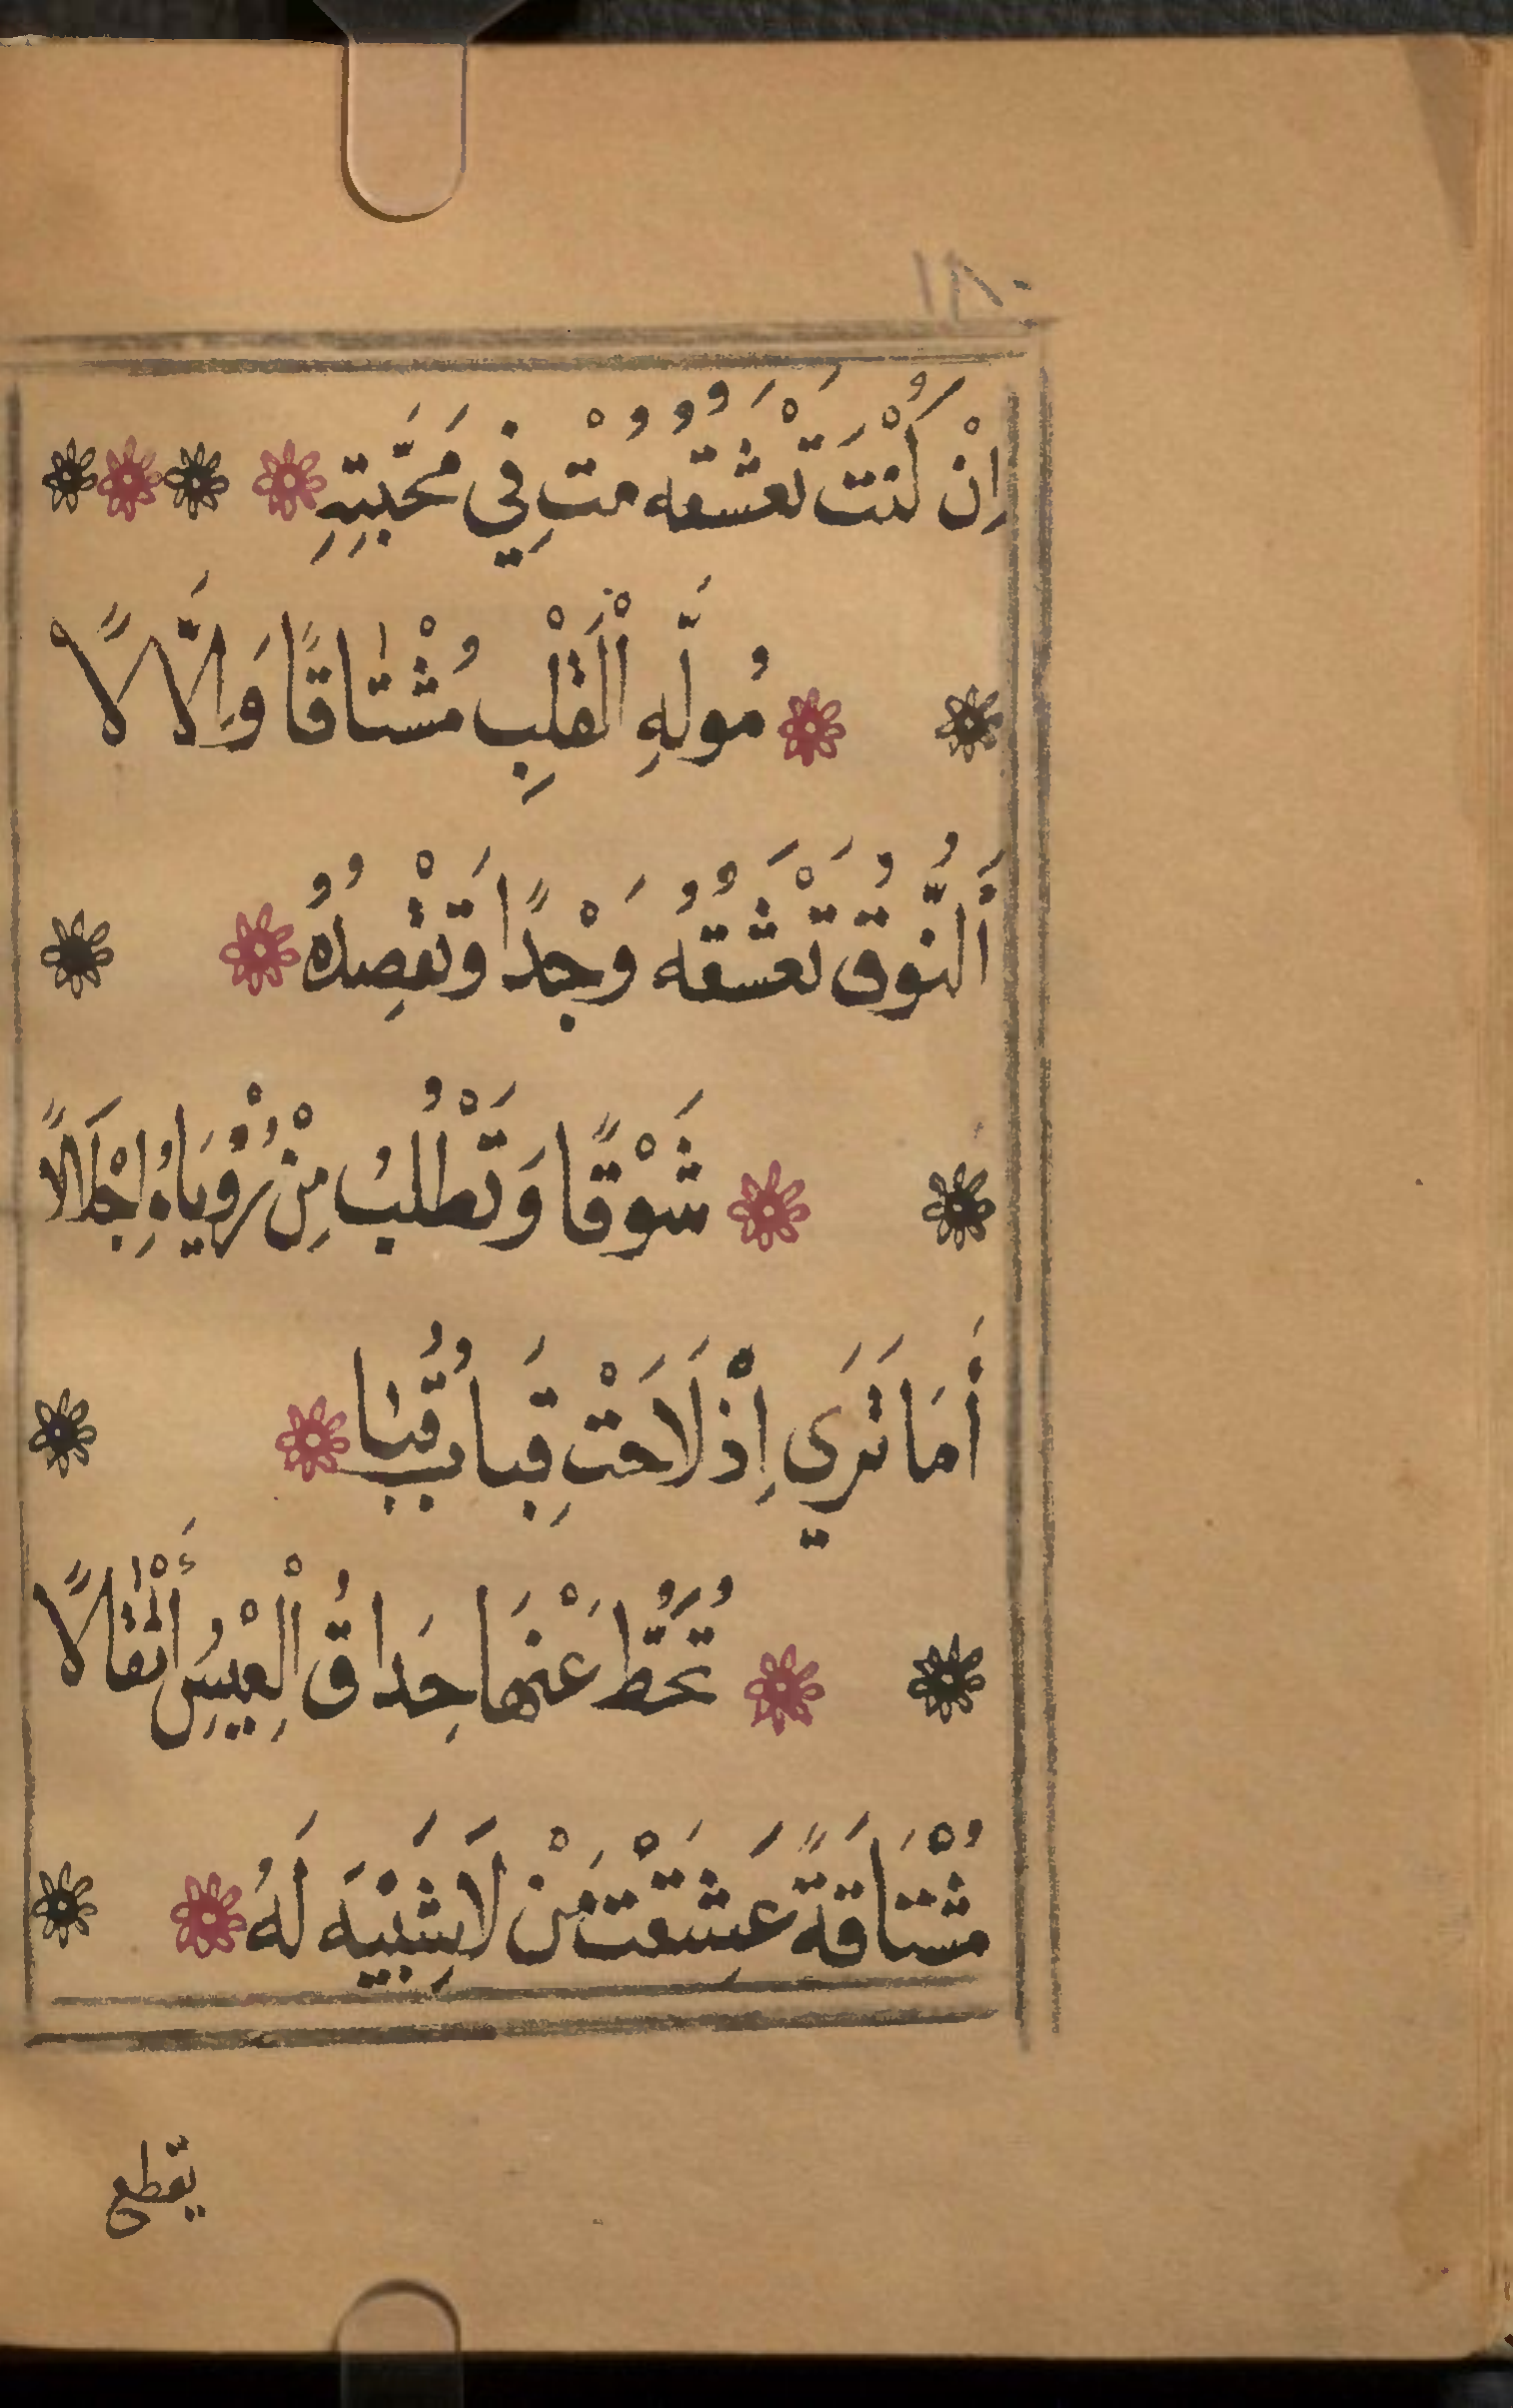 ١٨٠
اِنْ كُنْتَ تَعْشَقُهُ مُتْ فِي مَحَبَّتِهِ
مُولَّهِ اْلْقَلْبِ مُشْتٰاقًا وَاِلَّا لًا
أَلنُّوقُ تَعْشَقُهُ وَجْدًا وَتَقْصِدُهُ
شَوْقًا وَتَطْلُبُ مِنْ رُؤْيَاهُ اِجْلَالًا
أَمَا تَرَي اِذْ لَاحَتْ قِبَابُ قُبٰا
تُحَطُّ عَنْهَا حِدَاقُ الْعِيْسِ أَثْقٰالًا
مُشْتَاقَةً عَشِقَتْ مَنْ لَا شَبِيْهَ لَهُ
يقطع